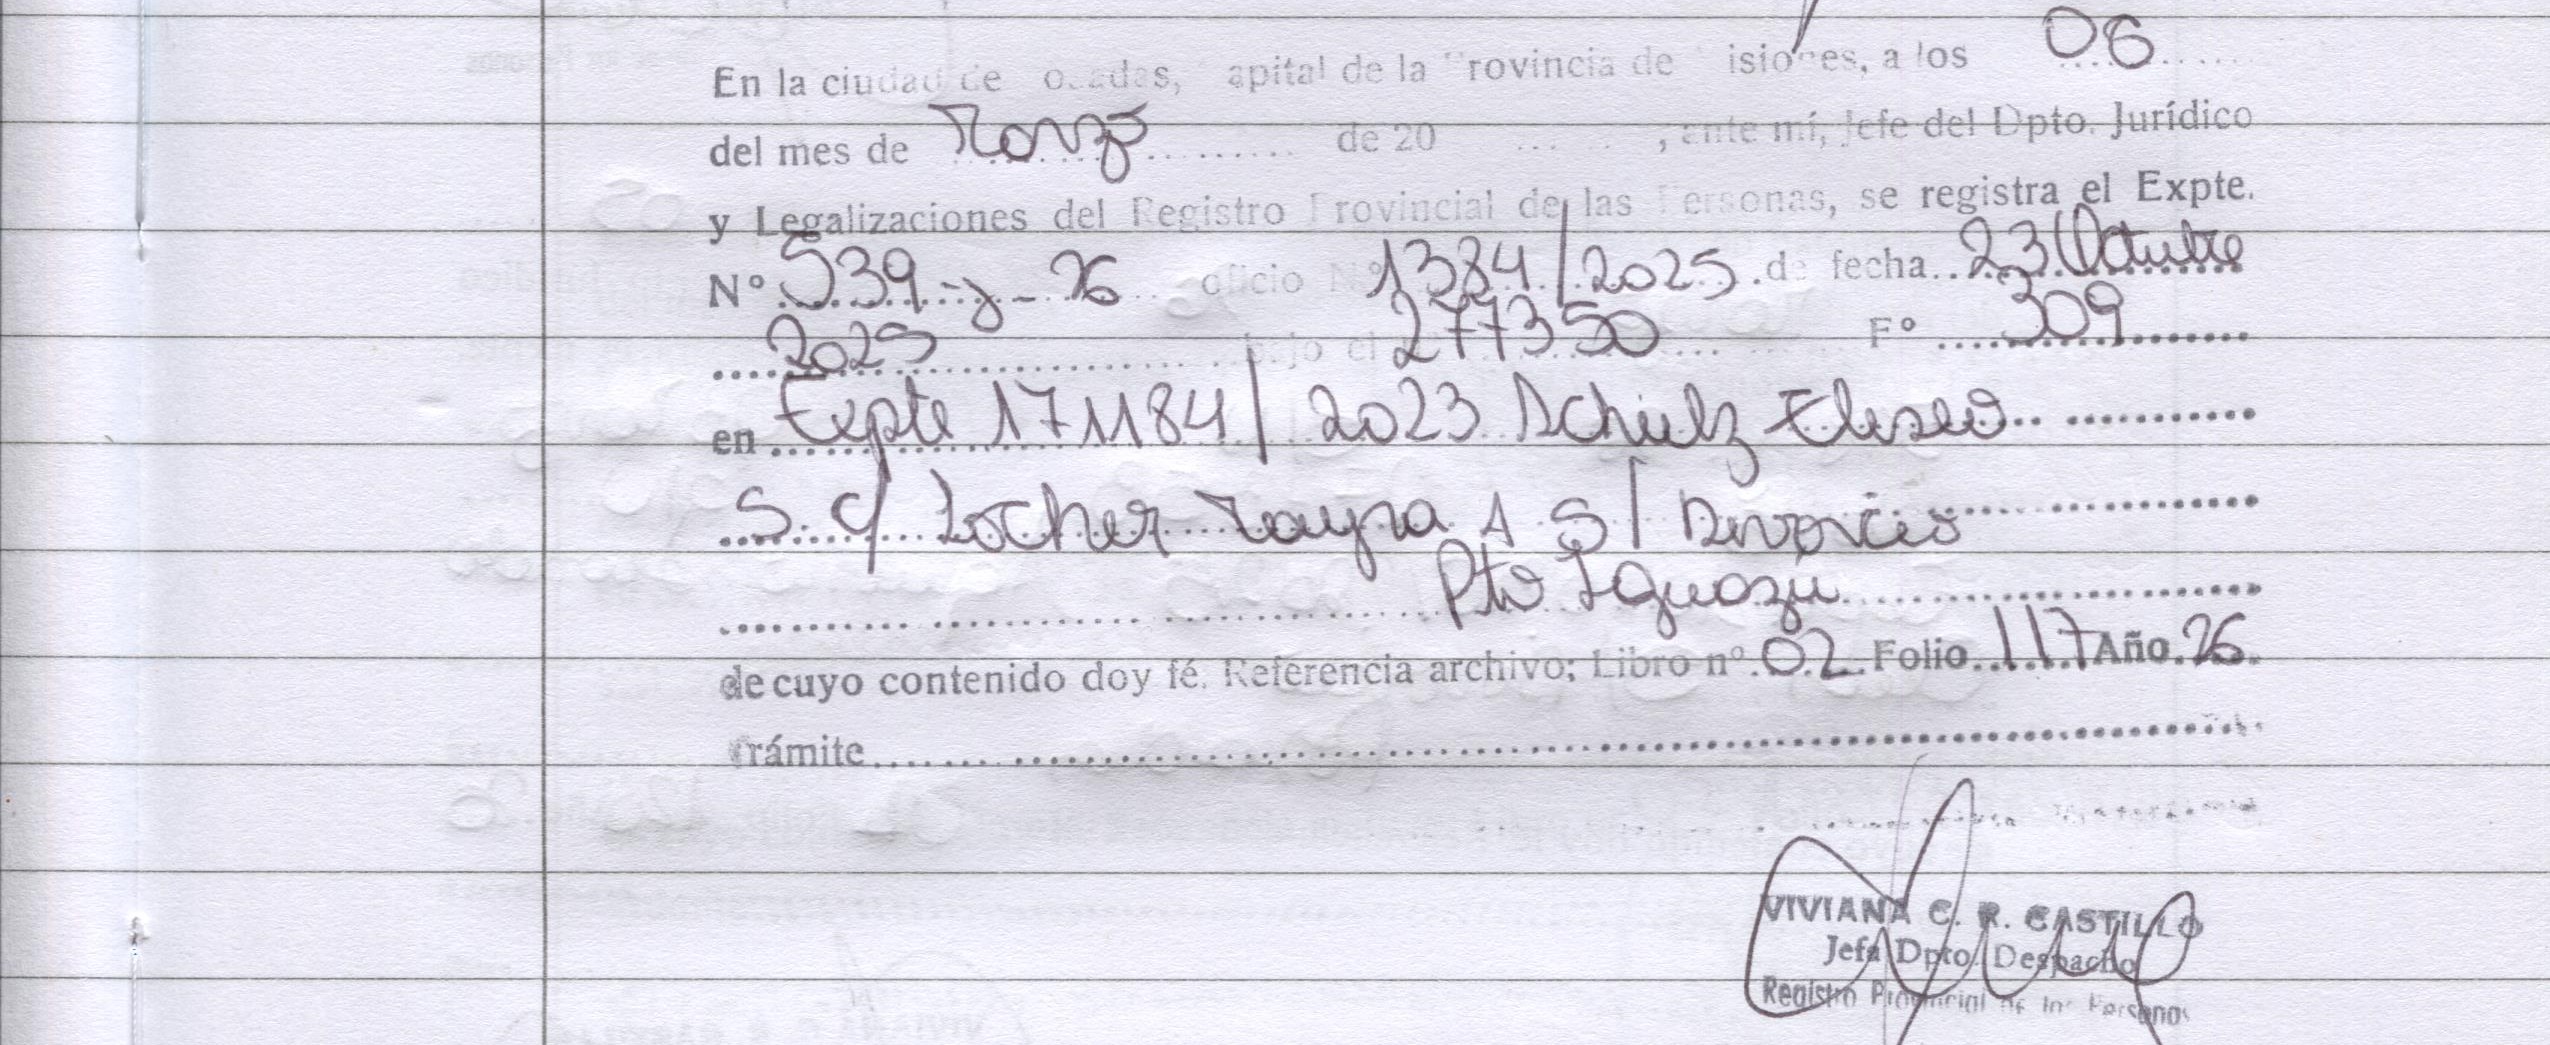 En la ciudad de Posadas, Capital de la Provincia de Misiones, a los 06
del mes de Marzo de 20 , ante mí, Jefe del Dpto. Jurídico
y Legalizaciones del Registro Provincial de las Personas, se registra el Expte.
Nº 539-y-26 oficio Nº 1384/2025 de fecha 23 Octubre
2025 bajo el Nº 277350 Fº 309
en Expte 171184/2023 Schulz Eliseo
S. c/ Locher Mayra A s/ Divorcio
Pto Iguazu
de cuyo contenido doy fé. Referencia archivo; Libro nº 02 Folio 117 Año 26
Trámite
VIVIANA C. R. CASTILLO
Jefa Dpto. Despacho
Registro Provincial de las Personas